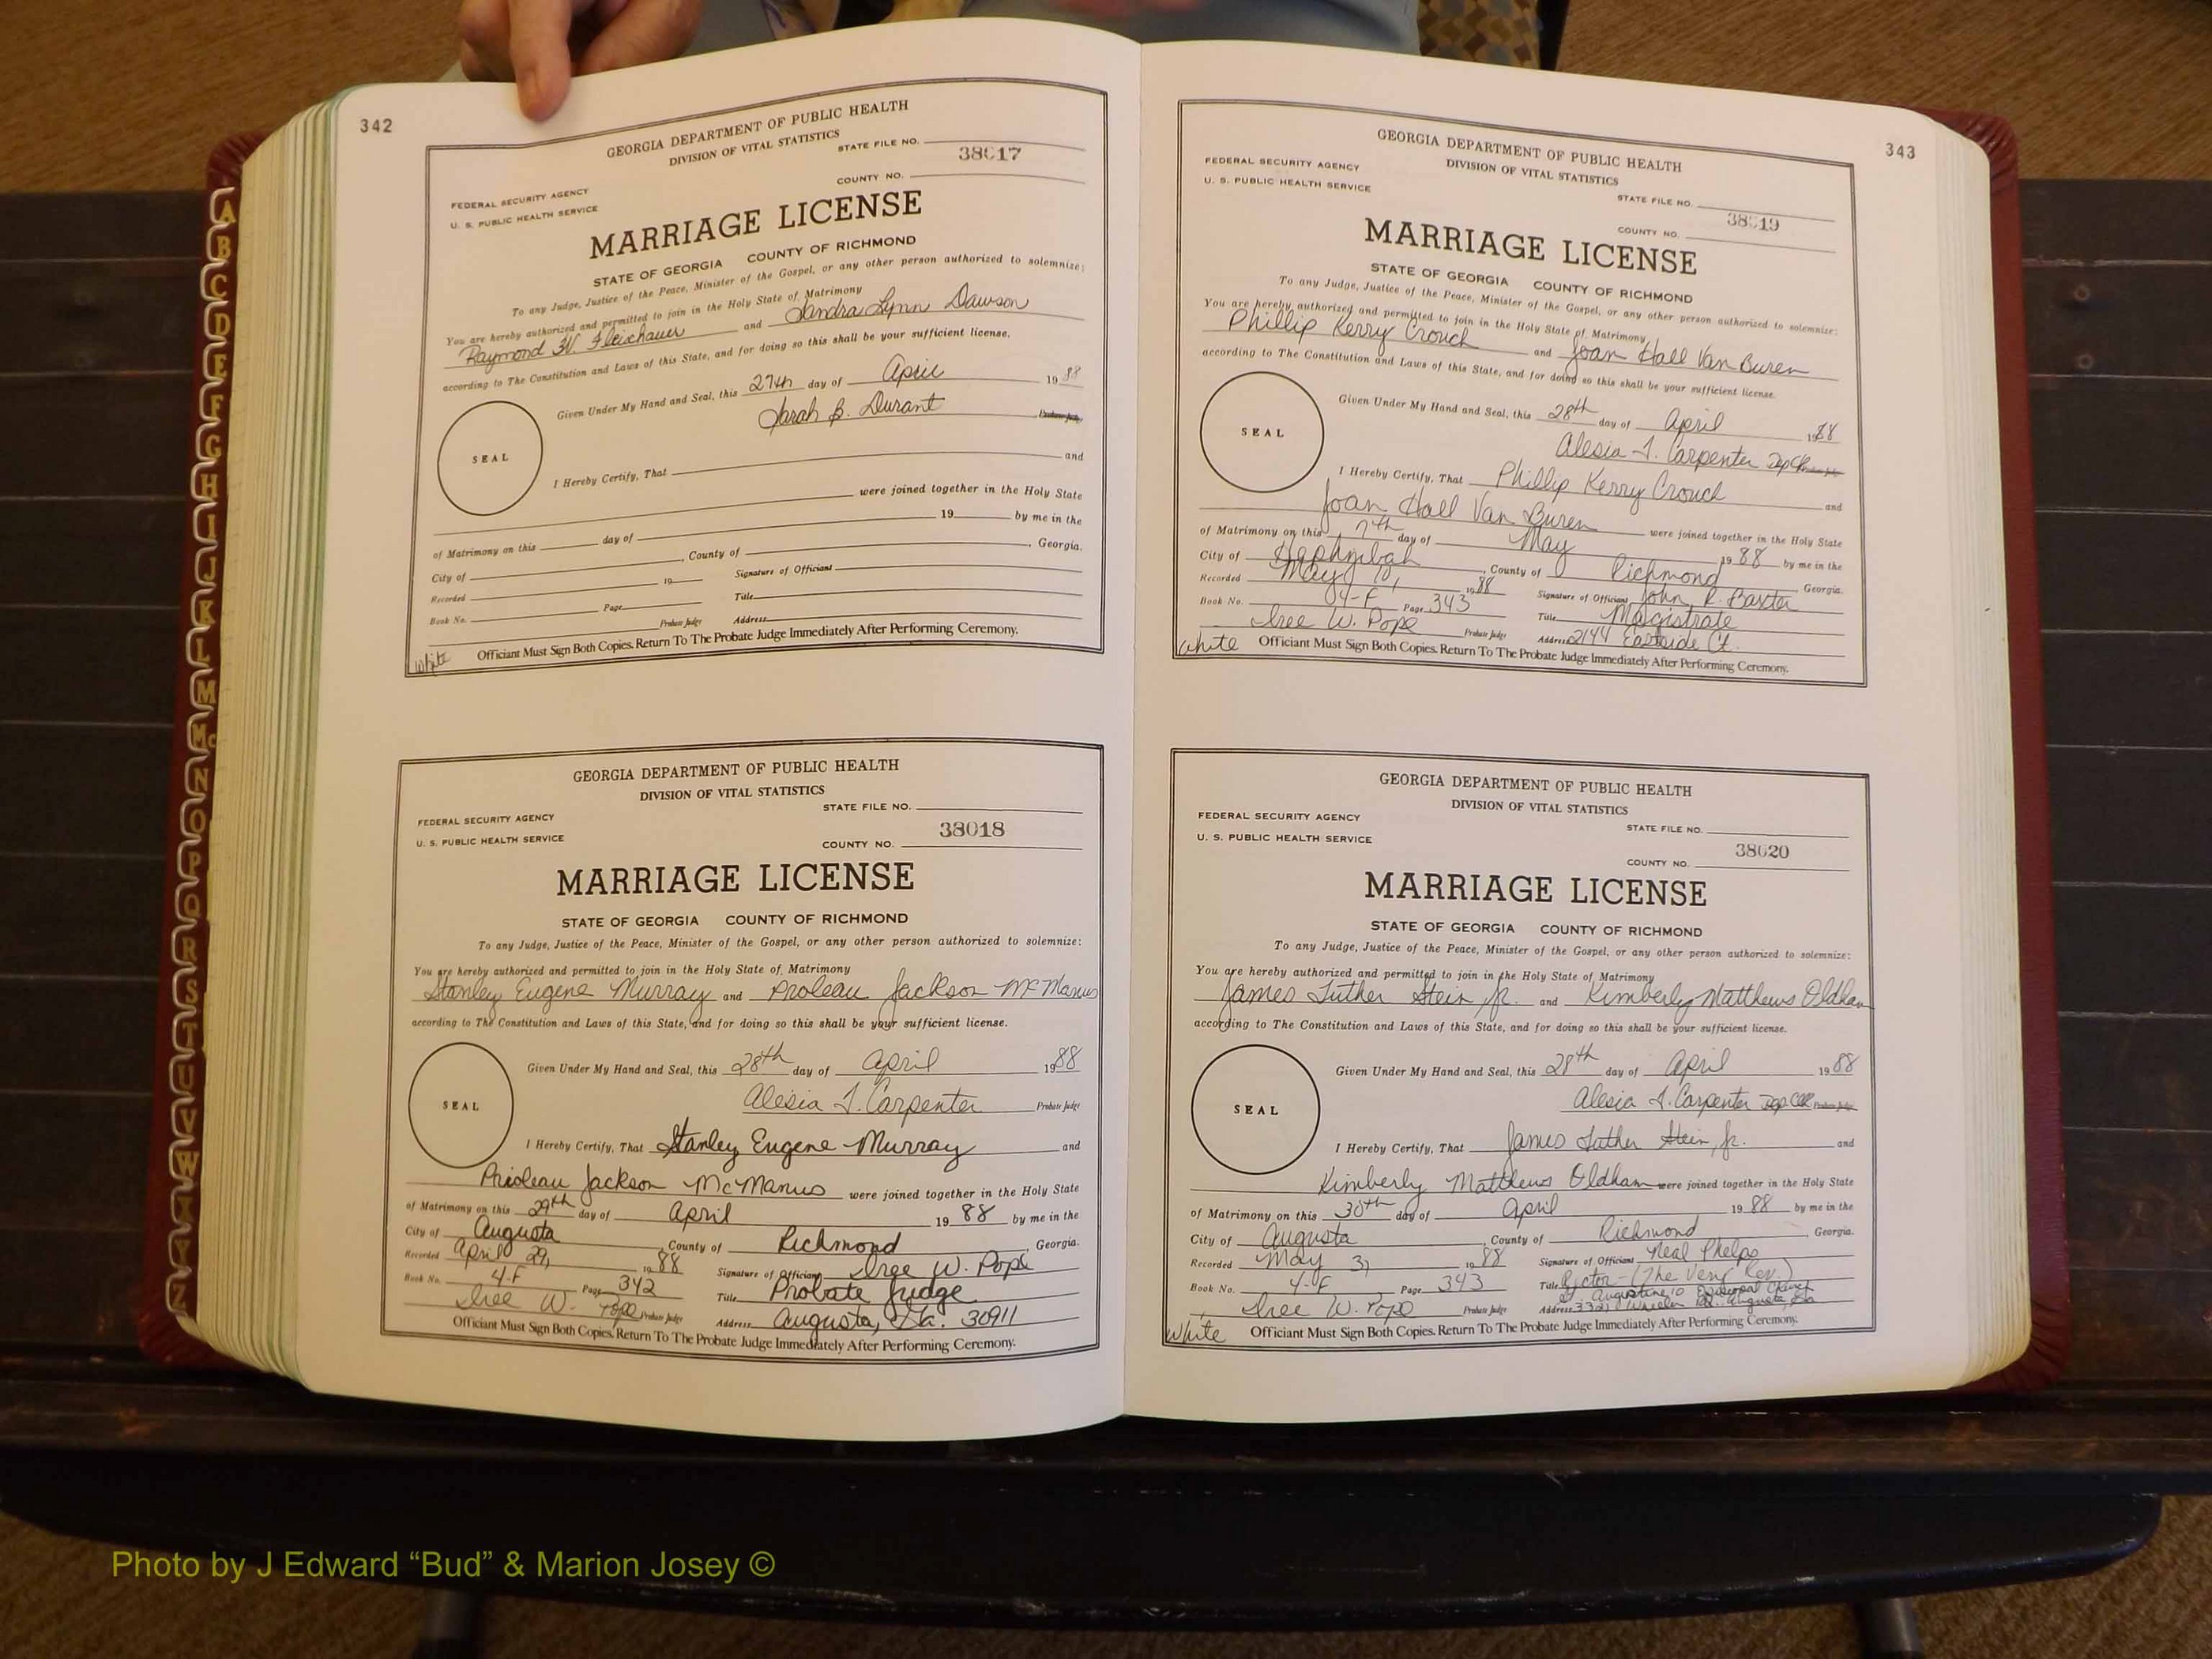 342
GEORGIA DEPARTMENT OF PUBLIC HEALTH
DIVISION OF VITAL STATISTICS
STATE FILE NO.
38017
COUNTY NO.
FEDERAL SECURITY AGENCY
U. S. PUBLIC HEALTH SERVICE
MARRIAGE LICENSE
STATE OF GEORGIA COUNTY OF RICHMOND
To any Judge, Justice of the Peace, Minister of the Gospel, or any other person authorized to solemnize:
You are hereby authorized and permitted to join in the Holy State of Matrimony
Raymond W. Fleischauer and Sandra Lynn Dawson
according to The Constitution and Laws of this State, and for doing so this shall be your sufficient license.
Given Under My Hand and Seal, this 27th day of April 1988
Sarah B. Durant Probate Judge
SEAL
I Hereby Certify, That and
were joined together in the Holy State
of Matrimony on this day of 19 by me in the
City of , County of , Georgia.
Recorded 19 Signature of Officiant
Book No. Page Title
Probate Judge Address
White Officiant Must Sign Both Copies. Return To The Probate Judge Immediately After Performing Ceremony.
GEORGIA DEPARTMENT OF PUBLIC HEALTH
DIVISION OF VITAL STATISTICS
STATE FILE NO.
FEDERAL SECURITY AGENCY
38018
U. S. PUBLIC HEALTH SERVICE
COUNTY NO.
MARRIAGE LICENSE
STATE OF GEORGIA COUNTY OF RICHMOND
To any Judge, Justice of the Peace, Minister of the Gospel, or any other person authorized to solemnize:
You are hereby authorized and permitted to join in the Holy State of Matrimony
Stanley Eugene Murray and Proleau Jackson McManus
according to The Constitution and Laws of this State, and for doing so this shall be your sufficient license.
Given Under My Hand and Seal, this 28th day of April 1988
Alesia J. Carpenter Probate Judge
SEAL
I Hereby Certify, That Stanley Eugene Murray and
Prioleau Jackson McManus were joined together in the Holy State
of Matrimony on this 29th day of April 19 88 by me in the
City of Augusta , County of Richmond , Georgia.
Recorded April 29, 19 88 Signature of Officiant W. Pope
Book No. 4-F Page 342 Title Probate Judge
W. Pope Probate Judge Address Augusta, Ga. 30911
Officiant Must Sign Both Copies. Return To The Probate Judge Immediately After Performing Ceremony.
343
GEORGIA DEPARTMENT OF PUBLIC HEALTH
DIVISION OF VITAL STATISTICS
FEDERAL SECURITY AGENCY
U. S. PUBLIC HEALTH SERVICE
STATE FILE NO.
38019
COUNTY NO.
MARRIAGE LICENSE
STATE OF GEORGIA COUNTY OF RICHMOND
To any Judge, Justice of the Peace, Minister of the Gospel, or any other person authorized to solemnize:
You are hereby authorized and permitted to join in the Holy State of Matrimony
Phillip Kerry Crouch and Joan Hall Van Buren
according to The Constitution and Laws of this State, and for doing so this shall be your sufficient license.
Given Under My Hand and Seal, this 28th day of April 1988
Alesia J. Carpenter Dep Clk Probate Judge
SEAL
I Hereby Certify, That Phillip Kerry Crouch and
Joan Hall Van Buren were joined together in the Holy State
of Matrimony on this 7th day of May 19 88 by me in the
City of , County of Richmond , Georgia.
Recorded May 1988 Signature of Officiant John R. Baxter
Book No. 4-F Page 343 Title Magistrate
W. Pope Probate Judge Address 2144 Eastside Ct.
White Officiant Must Sign Both Copies. Return To The Probate Judge Immediately After Performing Ceremony.
GEORGIA DEPARTMENT OF PUBLIC HEALTH
DIVISION OF VITAL STATISTICS
FEDERAL SECURITY AGENCY
STATE FILE NO.
U. S. PUBLIC HEALTH SERVICE
38020
COUNTY NO.
MARRIAGE LICENSE
STATE OF GEORGIA COUNTY OF RICHMOND
To any Judge, Justice of the Peace, Minister of the Gospel, or any other person authorized to solemnize:
You are hereby authorized and permitted to join in the Holy State of Matrimony
James Luther Stein, Jr. and Kimberly Matthews Oldham
according to The Constitution and Laws of this State, and for doing so this shall be your sufficient license.
Given Under My Hand and Seal, this 28th day of April 1988
Alesia J. Carpenter Dep Clk Probate Judge
SEAL
I Hereby Certify, That James Luther Stein, Jr. and
Kimberly Matthews Oldham were joined together in the Holy State
of Matrimony on this 30th day of April 19 88 by me in the
City of Augusta , County of Richmond , Georgia.
Recorded May 3, 1988 Signature of Officiant Neal Phelps
Book No. 4-F Page 343 Title Rector - (The Very Rev.)
St. Augustine's Episcopal Church
W. Pope Probate Judge Address 3321 Wheeler Rd. Augusta, Ga
White Officiant Must Sign Both Copies. Return To The Probate Judge Immediately After Performing Ceremony.
A
B
C
D
E
F
G
H
I
J
K
L
M
Mc
N
O
P
Q
R
S
T
U
V
W
X
Y
Z
Photo by J Edward “Bud” & Marion Josey ©